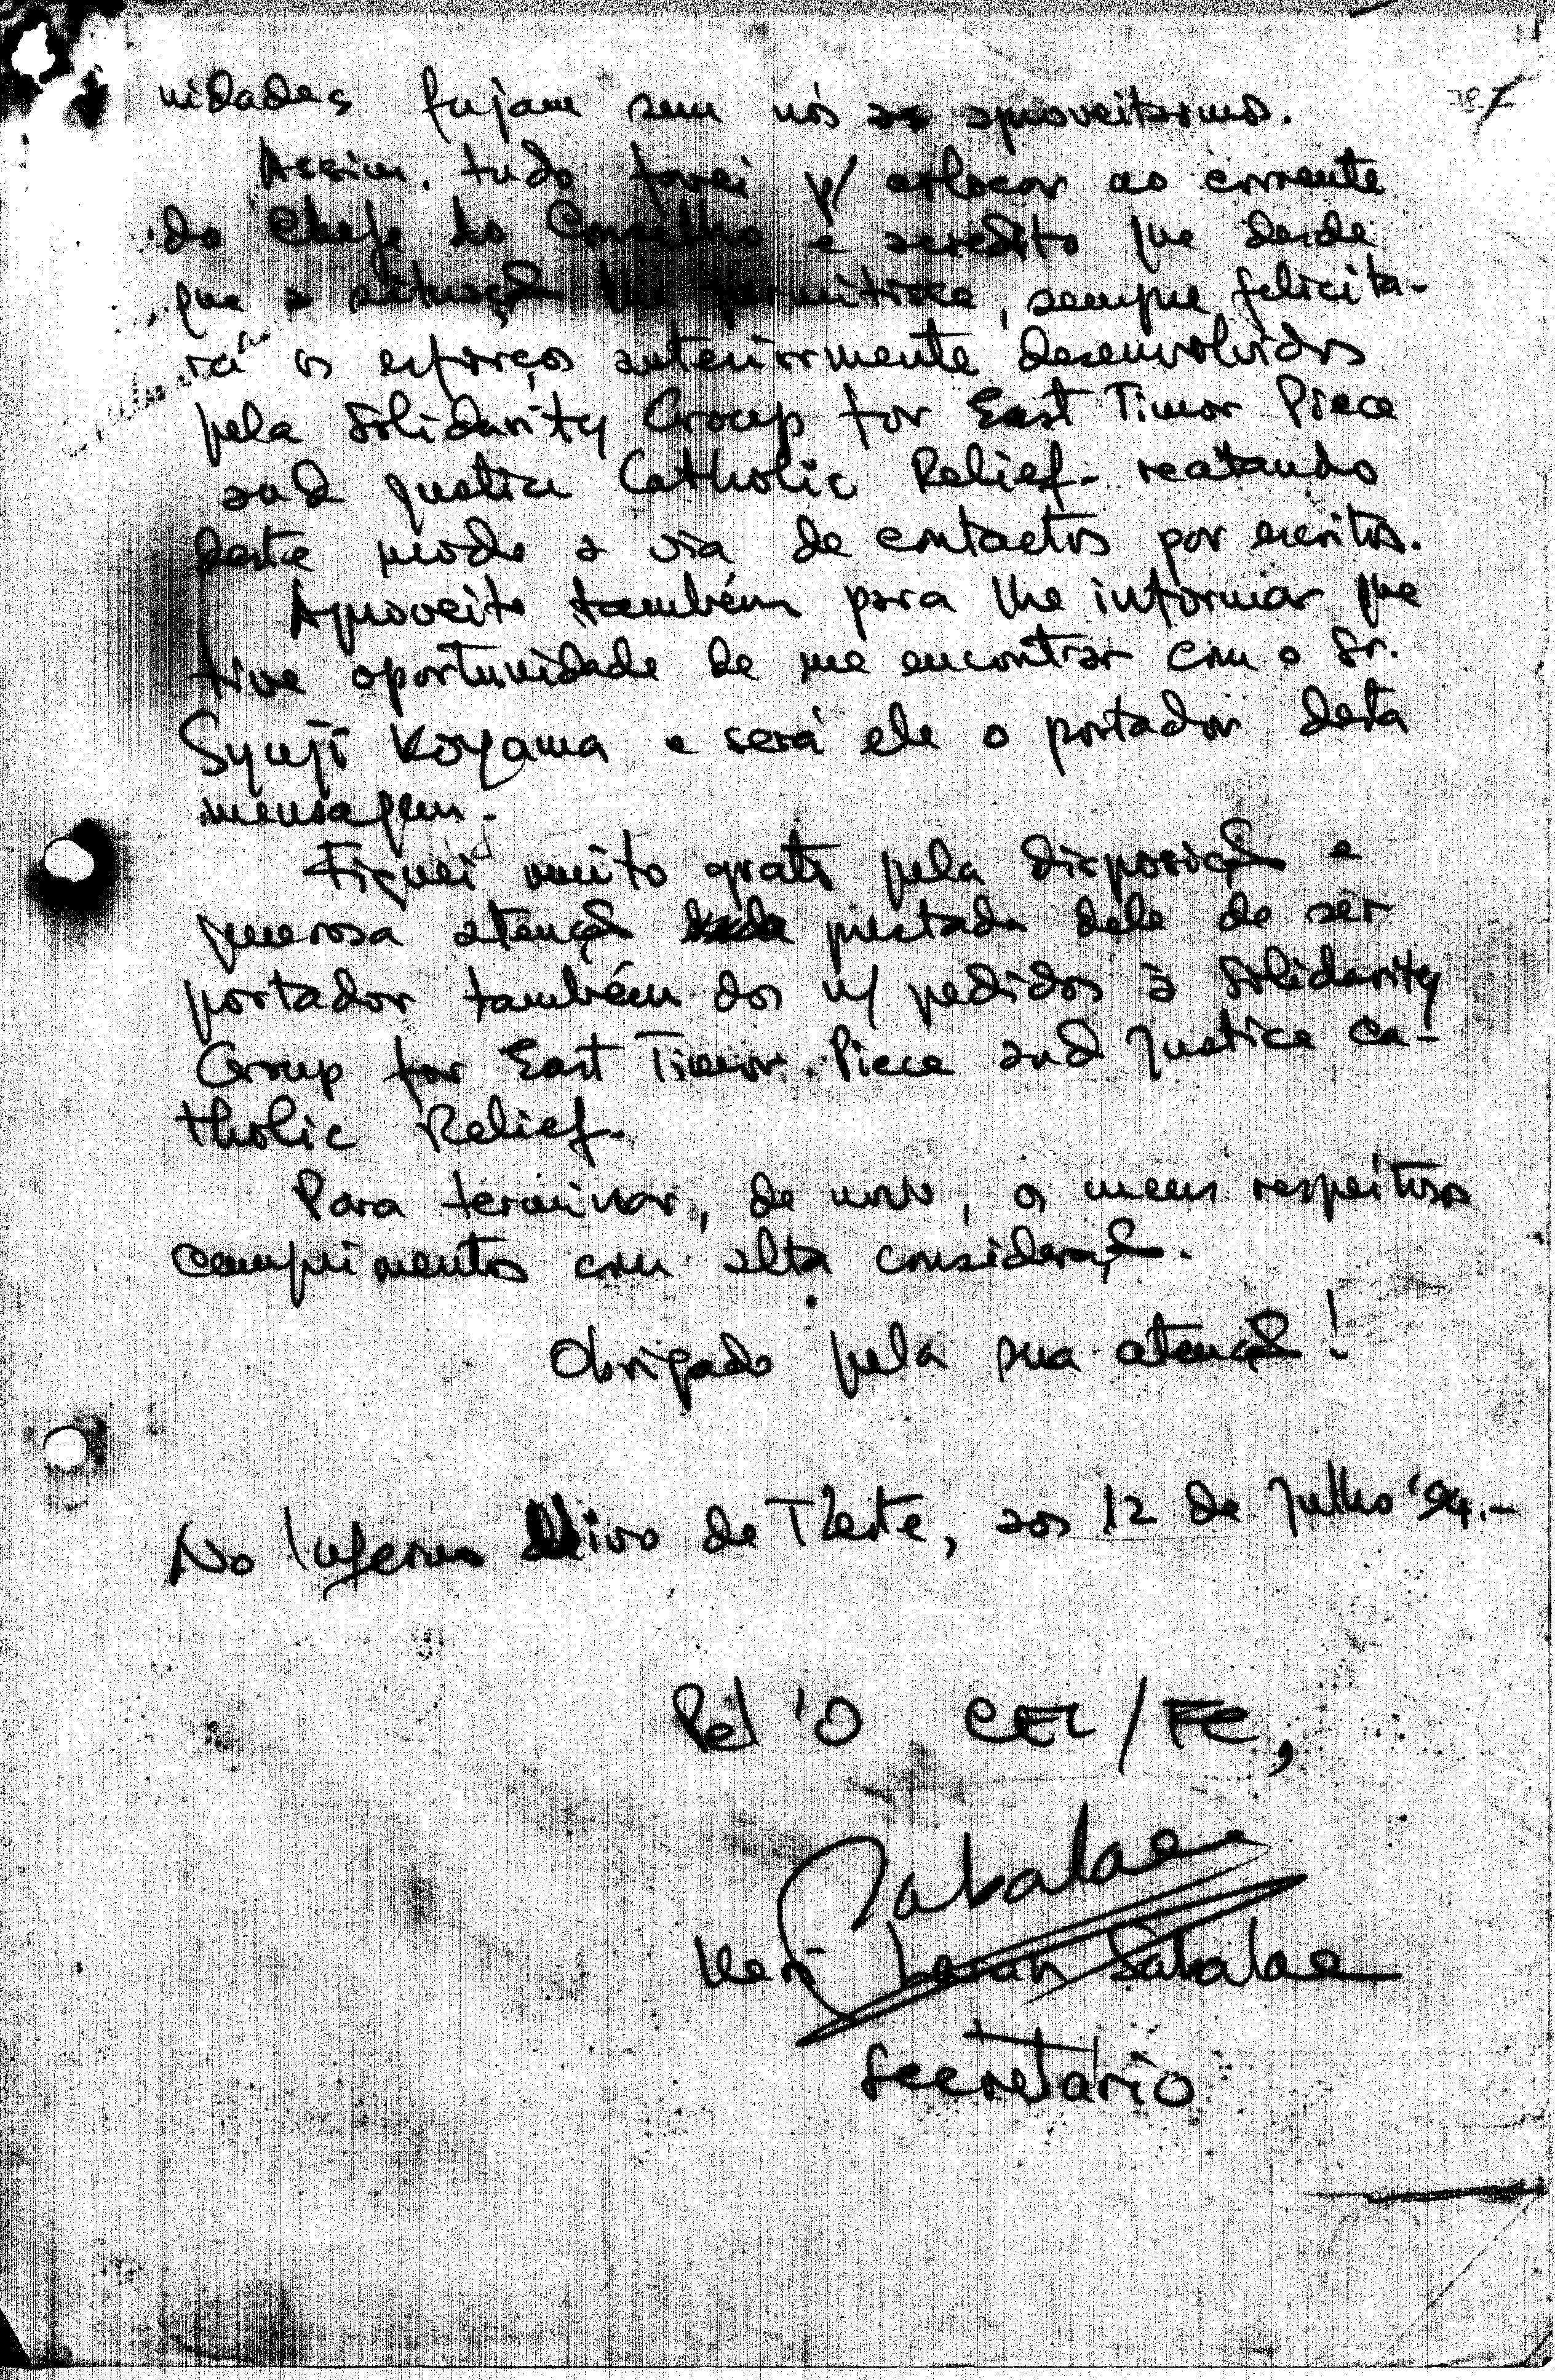 nidades fujam sem nós as aproveitarmos.
Assim, tudo farei p/ colocar ao corrente
do Chefe do Conselho e acredito que desde
que a situação lhe permitisse, sempre felicita-
rá os esforços anteriormente desenvolvidos
pela Solidarity Group for East Timor Piece
and Justice Catholic Relief - reatando
deste modo a via de contactos por escritos.
Aproveito também para lhe informar que
tive oportunidade de me encontrar com o Sr.
Syuji Koyama e será ele o portador desta
mensagem.
Fiquei muito grato pela disposição e
generosa atenção prestada dele de ser
portador também dos n/ pedidos à Solidarity
Group for East Timor Piece and Justice Ca-
tholic Relief.
Para terminar, de novo, os meus respeitosos
cumprimentos com alta consideração.
Obrigado pela sua atenção!
No Inferno de TLeste, aos 12 de Julho '94.-
Pel'O CEL/FC,
Sabalae
Keri Laran Sabalae
Secretário